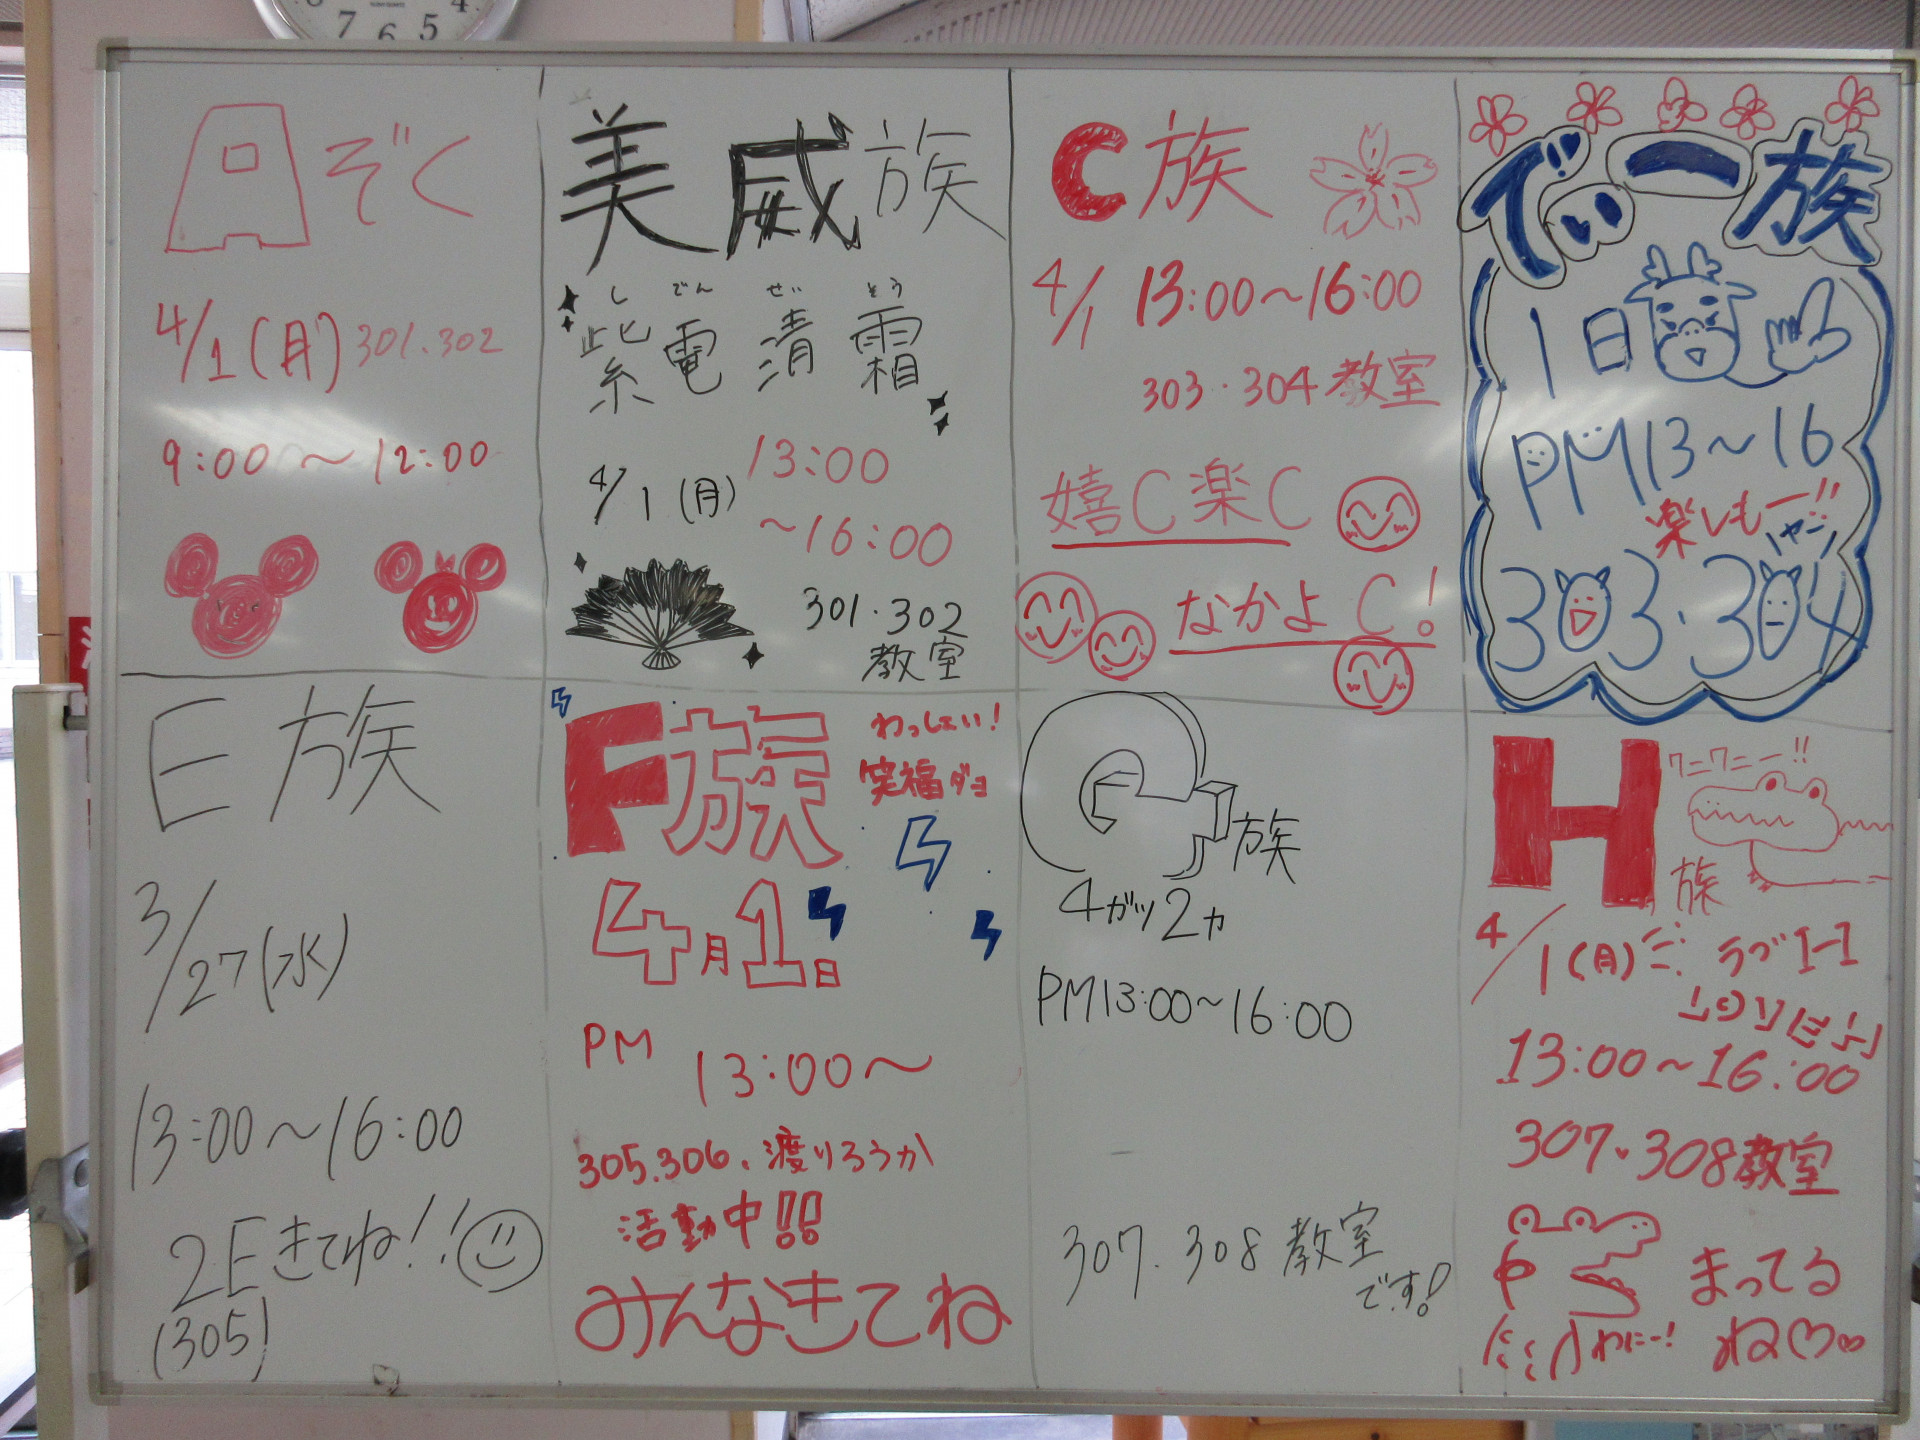 4
5
6
7
8
Aぞく
4/1(月)301.302
9:00 ～ 12:00
美威族
し でん せい そう
紫電清霜
4/1(月) 13:00
～16:00
301・302
教室
C族
4/1 13:00～16:00
303・304教室
嬉C楽C
なかよC!
でぃー族
1日
PM13～16
楽しもー!!
303・304
E族
3/27(水)
13:00～16:00
2Eきてね!!
(305)
F族
わっしょい!
笑福ダョ
4月1日
PM 13:00～
305.306.渡りろうか
活動中!!
みんなきてね
G族
4ガツ2カ
PM13:00～16:00
307.308教室
です!
H族
ワニワニー!!
4/1(月)
13:00～16:00
307・308教室
まってる
ね
わにー!